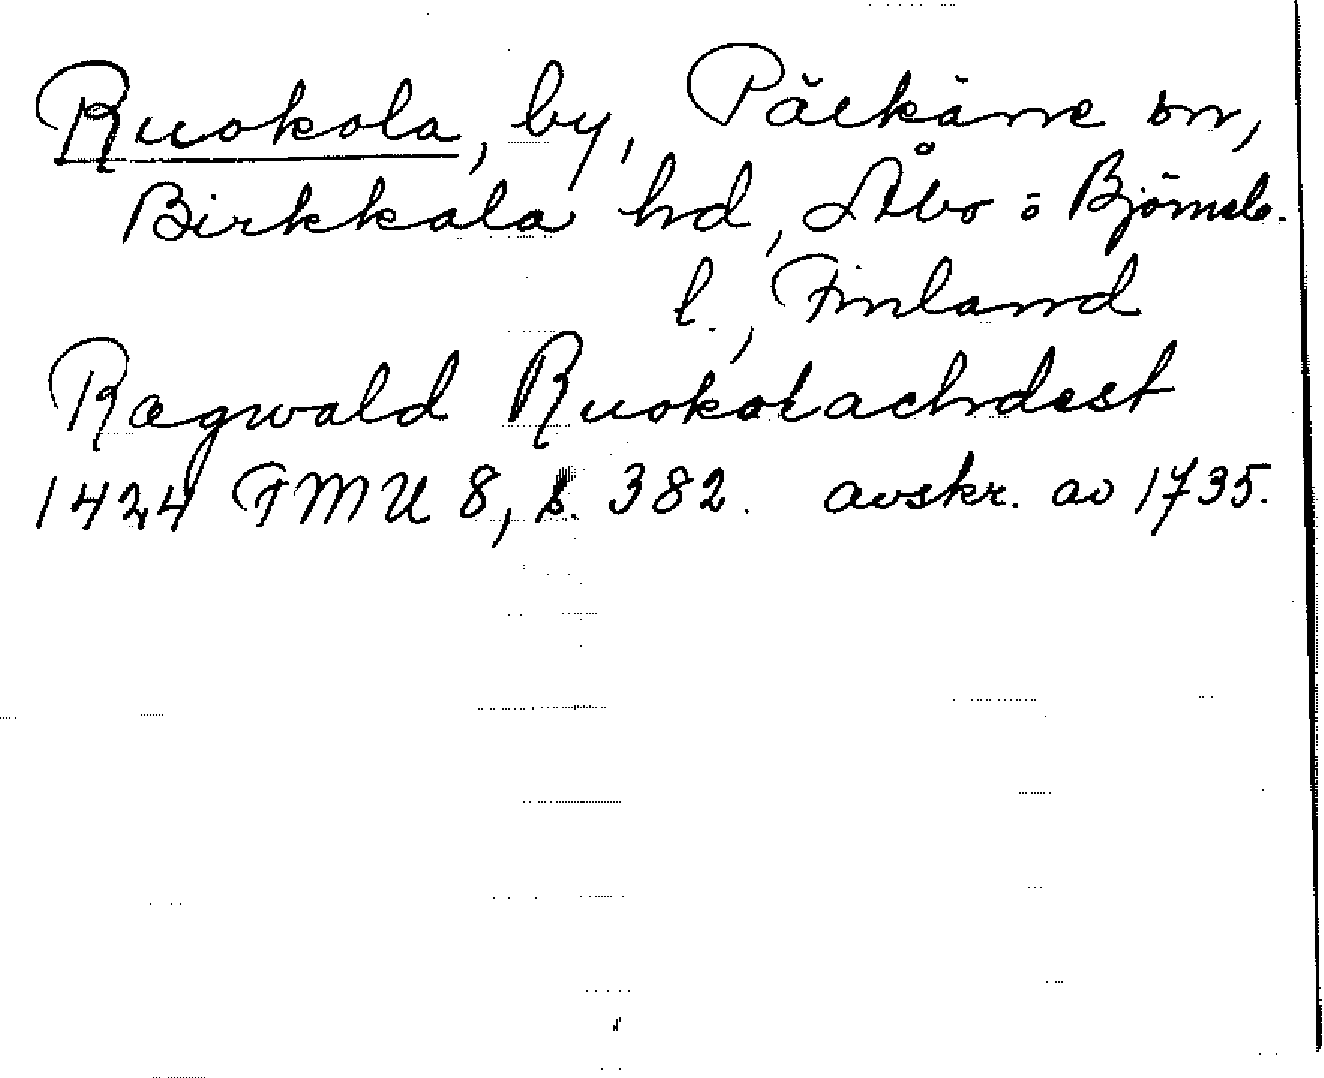 Ruokola, by, Pälkäne sn,
Birkkala hd, Åbo o Björneb.
l., Finland
Ragwald Ruokolachdest
1424 FMU 8, s. 382. avskr. av 1735.